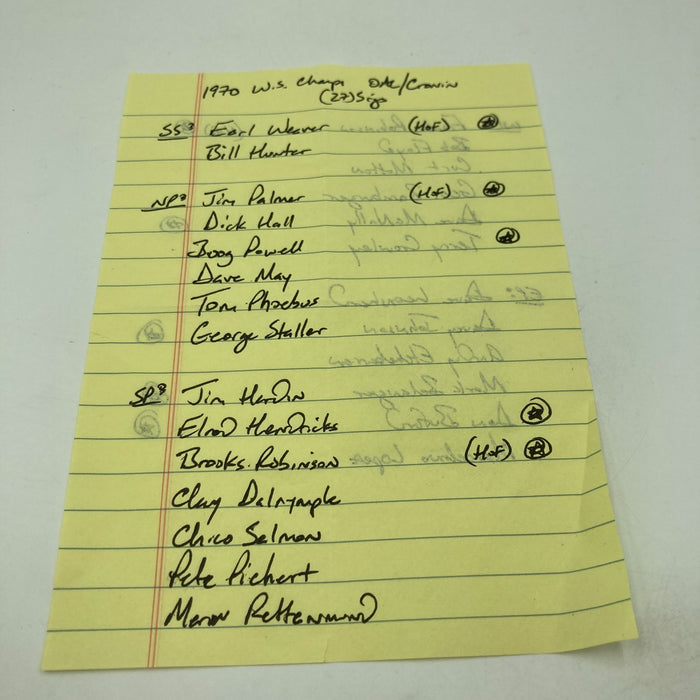 1970 W.S. Champs OAL/Cronin
(27) Sigs
SS: Earl Weaver (HOF)
Bill Hunter
NP: Jim Palmer (HOF)
Dick Hall
Boog Powell
Dave May
Tom Phoebus
George Staller
SP: Jim Hardin
Elrod Hendricks
Brooks Robinson (HOF)
Clay Dalrymple
Chico Salmon
Pete Richert
Merv Rettenmund